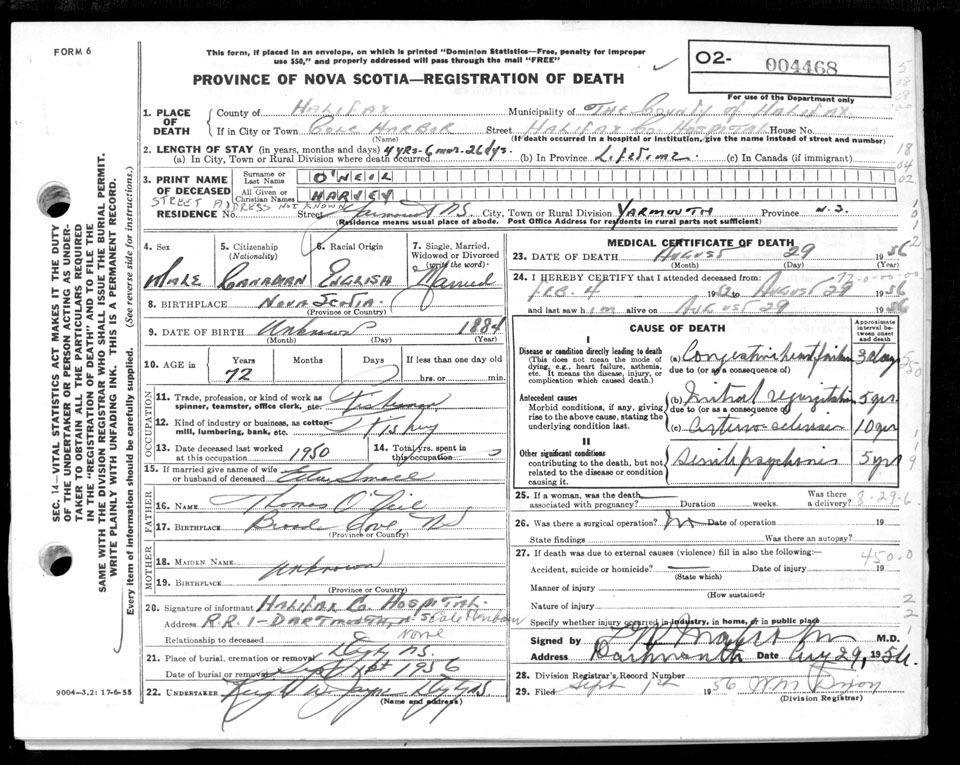 FORM 6
This form, if placed in an envelope, on which is printed "Dominion Statistics—Free, penalty for improper
use $50," and properly addressed will pass through the mail "FREE"
PROVINCE OF NOVA SCOTIA—REGISTRATION OF DEATH
02- 004468
For use of the Department only
1. PLACE OF DEATH
County of HALIFAX Municipality of THE COUNTY OF HALIFAX
If in City or Town COLE HARBOR Street HALIFAX CO. HOSPITAL House No.
(Name) (If death occurred in a hospital or institution, give the name instead of street and number)
2. LENGTH OF STAY (in years, months and days) 4 yrs-6 mos-26 dys.
(a) In City, Town or Rural Division where death occurred (b) In Province Lifetime. (c) In Canada (if immigrant)
3. PRINT NAME OF DECEASED
Surname or Last Name O'NEIL
All Given or Christian Names HARVEY
STREET ADDRESS NOT KNOWN
RESIDENCE No. Street N.S. City, Town or Rural Division YARMOUTH Province N.S.
(Residence means usual place of abode. Post Office Address for residents in rural parts not sufficient)
4. Sex MALE
5. Citizenship (Nationality) CANADIAN
6. Racial Origin ENGLISH
7. Single, Married, Widowed or Divorced (write the word) Married
8. BIRTHPLACE NOVA SCOTIA
(Province or Country)
9. DATE OF BIRTH Unknown 1884
(Month) (Day) (Year)
10. AGE Years Months Days If less than one day old
72 hrs. or min.
OCCUPATION
11. Trade, profession, or kind of work as spinner, teamster, office clerk, etc. Fisherman
12. Kind of industry or business, as cotton-mill, lumbering, bank, etc. Fishery
13. Date deceased last worked at this occupation 1950
14. Total yrs. spent in this occupation
15. If married give name of wife or husband of deceased Small
FATHER
16. NAME Thomas O'Neil
17. BIRTHPLACE Cove, NS
(Province or Country)
MOTHER
18. MAIDEN NAME
Unknown
19. BIRTHPLACE
(Province or Country)
20. Signature of informant HALIFAX CO. HOSPITAL.
Address R.R. 1-DARTMOUTH, N.S. Cole Harbour
Relationship to deceased None
21. Place of burial, cremation or removal Digby NS.
Date of burial or removal Sept 1st 1956
22. UNDERTAKER Digby NS
(Name and address)
MEDICAL CERTIFICATE OF DEATH
23. DATE OF DEATH AUGUST 29 1956
(Month) (Day) (Year)
24. I HEREBY CERTIFY that I attended deceased from:
FEB. 4 1952 to AUGUST 29 1956
and last saw him alive on AUGUST 29 1956
CAUSE OF DEATH
Approximate interval between onset and death
I
Disease or condition directly leading to death (a) Congestive heart failure 3 days
(This does not mean the mode of dying, e.g., heart failure, asthenia, etc. It means the disease, injury, or complication which caused death.) due to (or as a consequence of)
Antecedent causes (b) Mitral regurgitation 5 yrs
Morbid conditions, if any, giving rise to the above cause, stating the underlying condition last. due to (or as a consequence of)
(c) Arterio-sclerosis 10 yrs
II
Other significant conditions contributing to the death, but not related to the disease or condition causing it. Senile psychosis 5 yrs
25. If a woman, was the death associated with pregnancy? Duration weeks. Was there a delivery?
8-29-6
26. Was there a surgical operation? No Date of operation 19
State findings Was there an autopsy?
27. If death was due to external causes (violence) fill in also the following:
450.0
Accident, suicide or homicide? Date of injury 19
(State which)
Manner of injury
(How sustained)
Nature of injury
Specify whether injury occurred in industry, in home, or in public place
Signed by M.D.
Address Dartmouth Date Aug 29, 1956.
28. Division Registrar's Record Number
29. Filed Sept 1st 1956 Wm
(Division Registrar)
SEC. 14—VITAL STATISTICS ACT MAKES IT THE DUTY
OF THE UNDERTAKER OR PERSON ACTING AS UNDER-
TAKER TO OBTAIN ALL THE PARTICULARS REQUIRED
IN THE "REGISTRATION OF DEATH" AND TO FILE THE
SAME WITH THE DIVISION REGISTRAR WHO SHALL ISSUE THE BURIAL PERMIT.
WRITE PLAINLY WITH UNFADING INK. THIS IS A PERMANENT RECORD.
Every item of information should be carefully supplied. (See reverse side for instructions.)
9004—3.2: 17-6-55